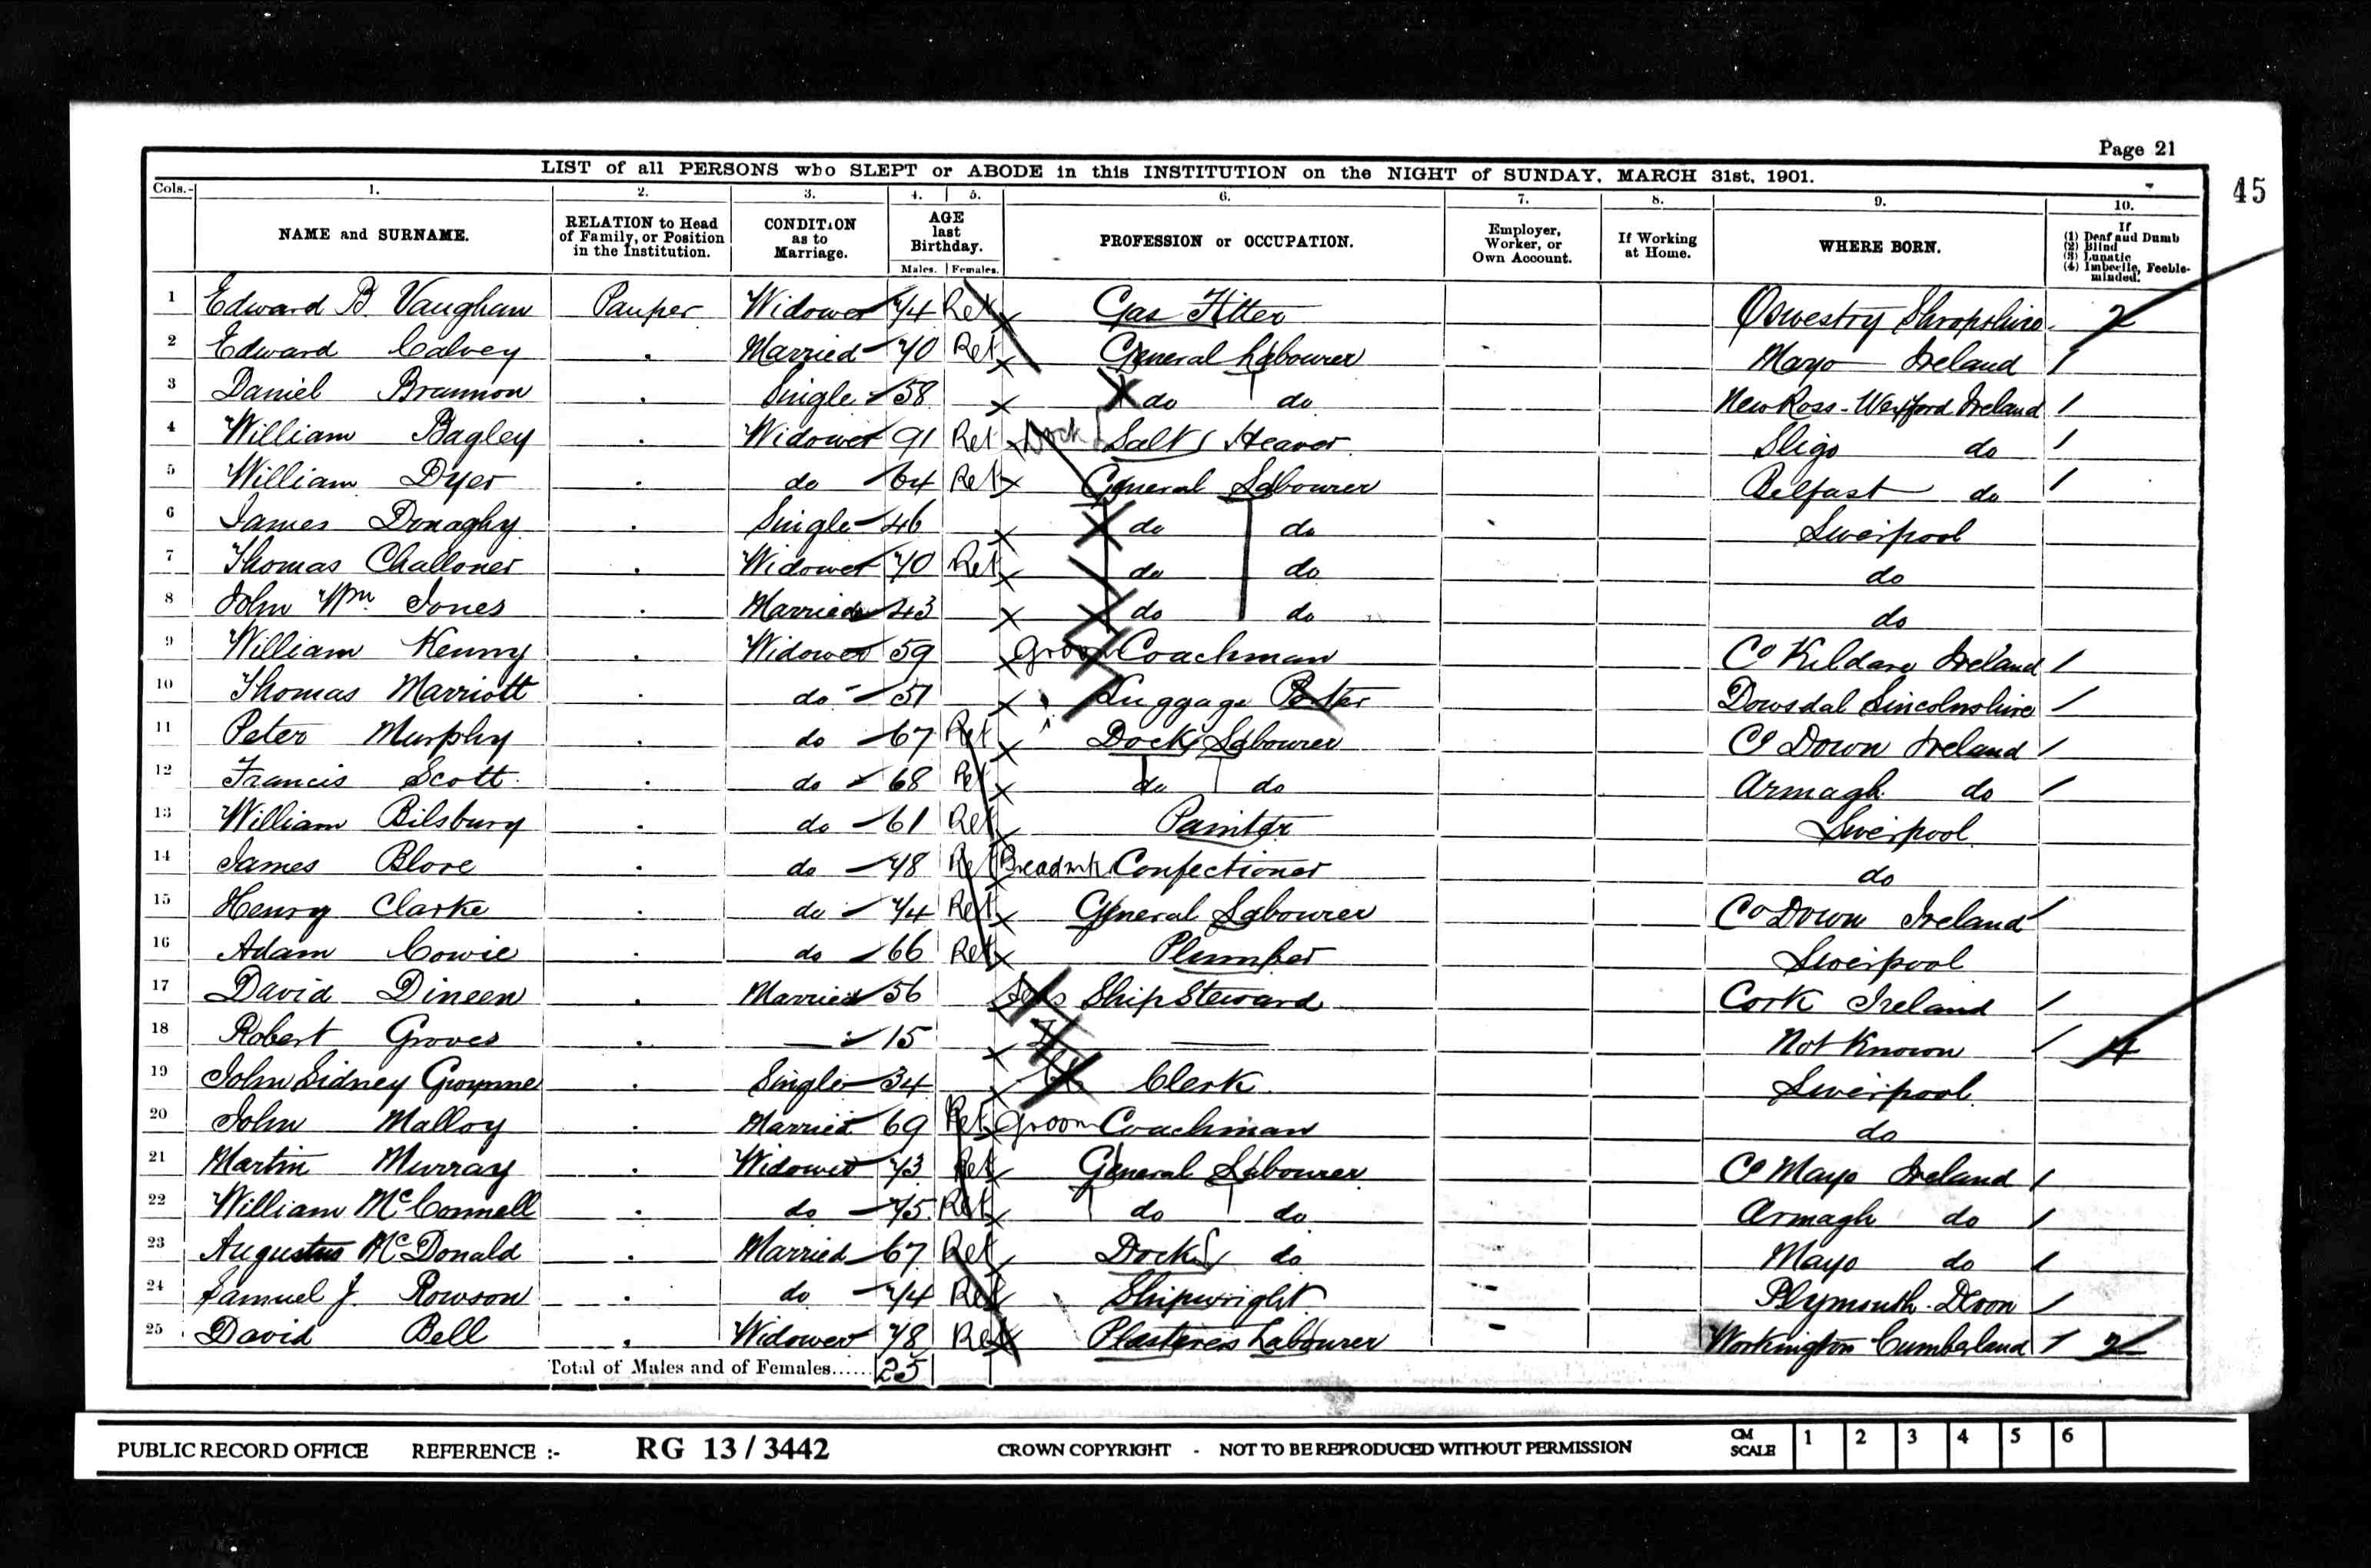 Page 21
45
LIST of all PERSONS who SLEPT or ABODE in this INSTITUTION on the NIGHT of SUNDAY, MARCH 31st, 1901.
Cols.- 1. 2. 3. 4. 5. 6. 7. 8. 9. 10.
NAME and SURNAME. RELATION to Head of Family, or Position in the Institution. CONDITION as to Marriage. AGE last Birthday. Males. Females. PROFESSION or OCCUPATION. Employer, Worker, or Own Account. If Working at Home. WHERE BORN. If (1) Deaf and Dumb (2) Blind (3) Lunatic (4) Imbecile, Feeble-minded.
1 Edward B. Vaughan Pauper Widower 74 Ret Gas Fitter Oswestry Shropshire 2
2 Edward Calvey Married 70 Ret General Labourer Mayo Ireland
3 Daniel Brannon Single 58 do do New Ross - Wexford Ireland
4 William Bagley Widower 91 Ret Dock Salt Heaver Sligo do
5 William Dyer do 64 Ret General Labourer Belfast do
6 James Donaghy Single 46 do do Liverpool
7 Thomas Challoner Widower 70 Ret do do do
8 John Wm Jones Married 43 do do do
9 William Kenny Widower 59 Groom Coachman Co Kildare Ireland
10 Thomas Marriott do 51 Luggage Porter Dowsdal Lincolnshire
11 Peter Murphy do 67 Ret Dock Labourer Co Down Ireland
12 Francis Scott do 68 Ret do do Armagh do
13 William Bilsbury do 61 Ret Painter Liverpool
14 James Blore do 78 Ret Breadmk Confectioner do
15 Henry Clarke do 74 Ret General Labourer Co Down Ireland
16 Adam Cowie do 66 Ret Plumber Liverpool
17 David Dineen Married 56 Ship Steward Cork Ireland
18 Robert Groves 15 Not Known 4
19 John Sidney Gwynne Single 34 Clerk Liverpool
20 John Malloy Married 69 Ret Groom Coachman do
21 Martin Murray Widower 73 Ret General Labourer Co Mayo Ireland
22 William McConnell do 75 Ret do do Armagh do
23 Augustus McDonald Married 67 Ret Dock do Mayo do
24 Samuel J. Rowson do 74 Ret Shipwright Plymouth Devon
25 David Bell Widower 78 Ret Plasterers Labourer Workington Cumberland 2
Total of Males and of Females...... 25
PUBLIC RECORD OFFICE REFERENCE :- RG 13 / 3442 CROWN COPYRIGHT - NOT TO BE REPRODUCED WITHOUT PERMISSION CM SCALE 1 2 3 4 5 6